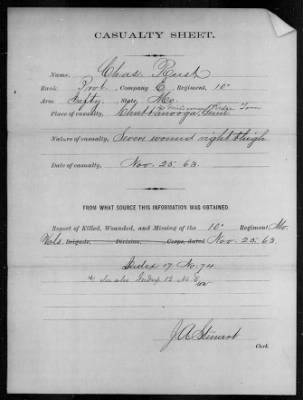 CASUALTY SHEET.
Name, Chas. Rush
Rank, Prvt, Company E, Regiment, 10"
Arm, Infty, State, Mo.
Missionary Ridge Tenn
Place of casualty, Chattanooga, Tenn.
Nature of casualty, Severe wound right thigh
Date of casualty, Nov. 25. 63.
FROM WHAT SOURCE THIS INFORMATION WAS OBTAINED.
Report of Killed, Wounded, and Missing of the 10" Regiment, Mo.
Vols. Brigade, Division, Corps, dated Nov. 25. 63.
Index 17. No. 74.
Index 12 No.
J.A. Stewart
Clerk.